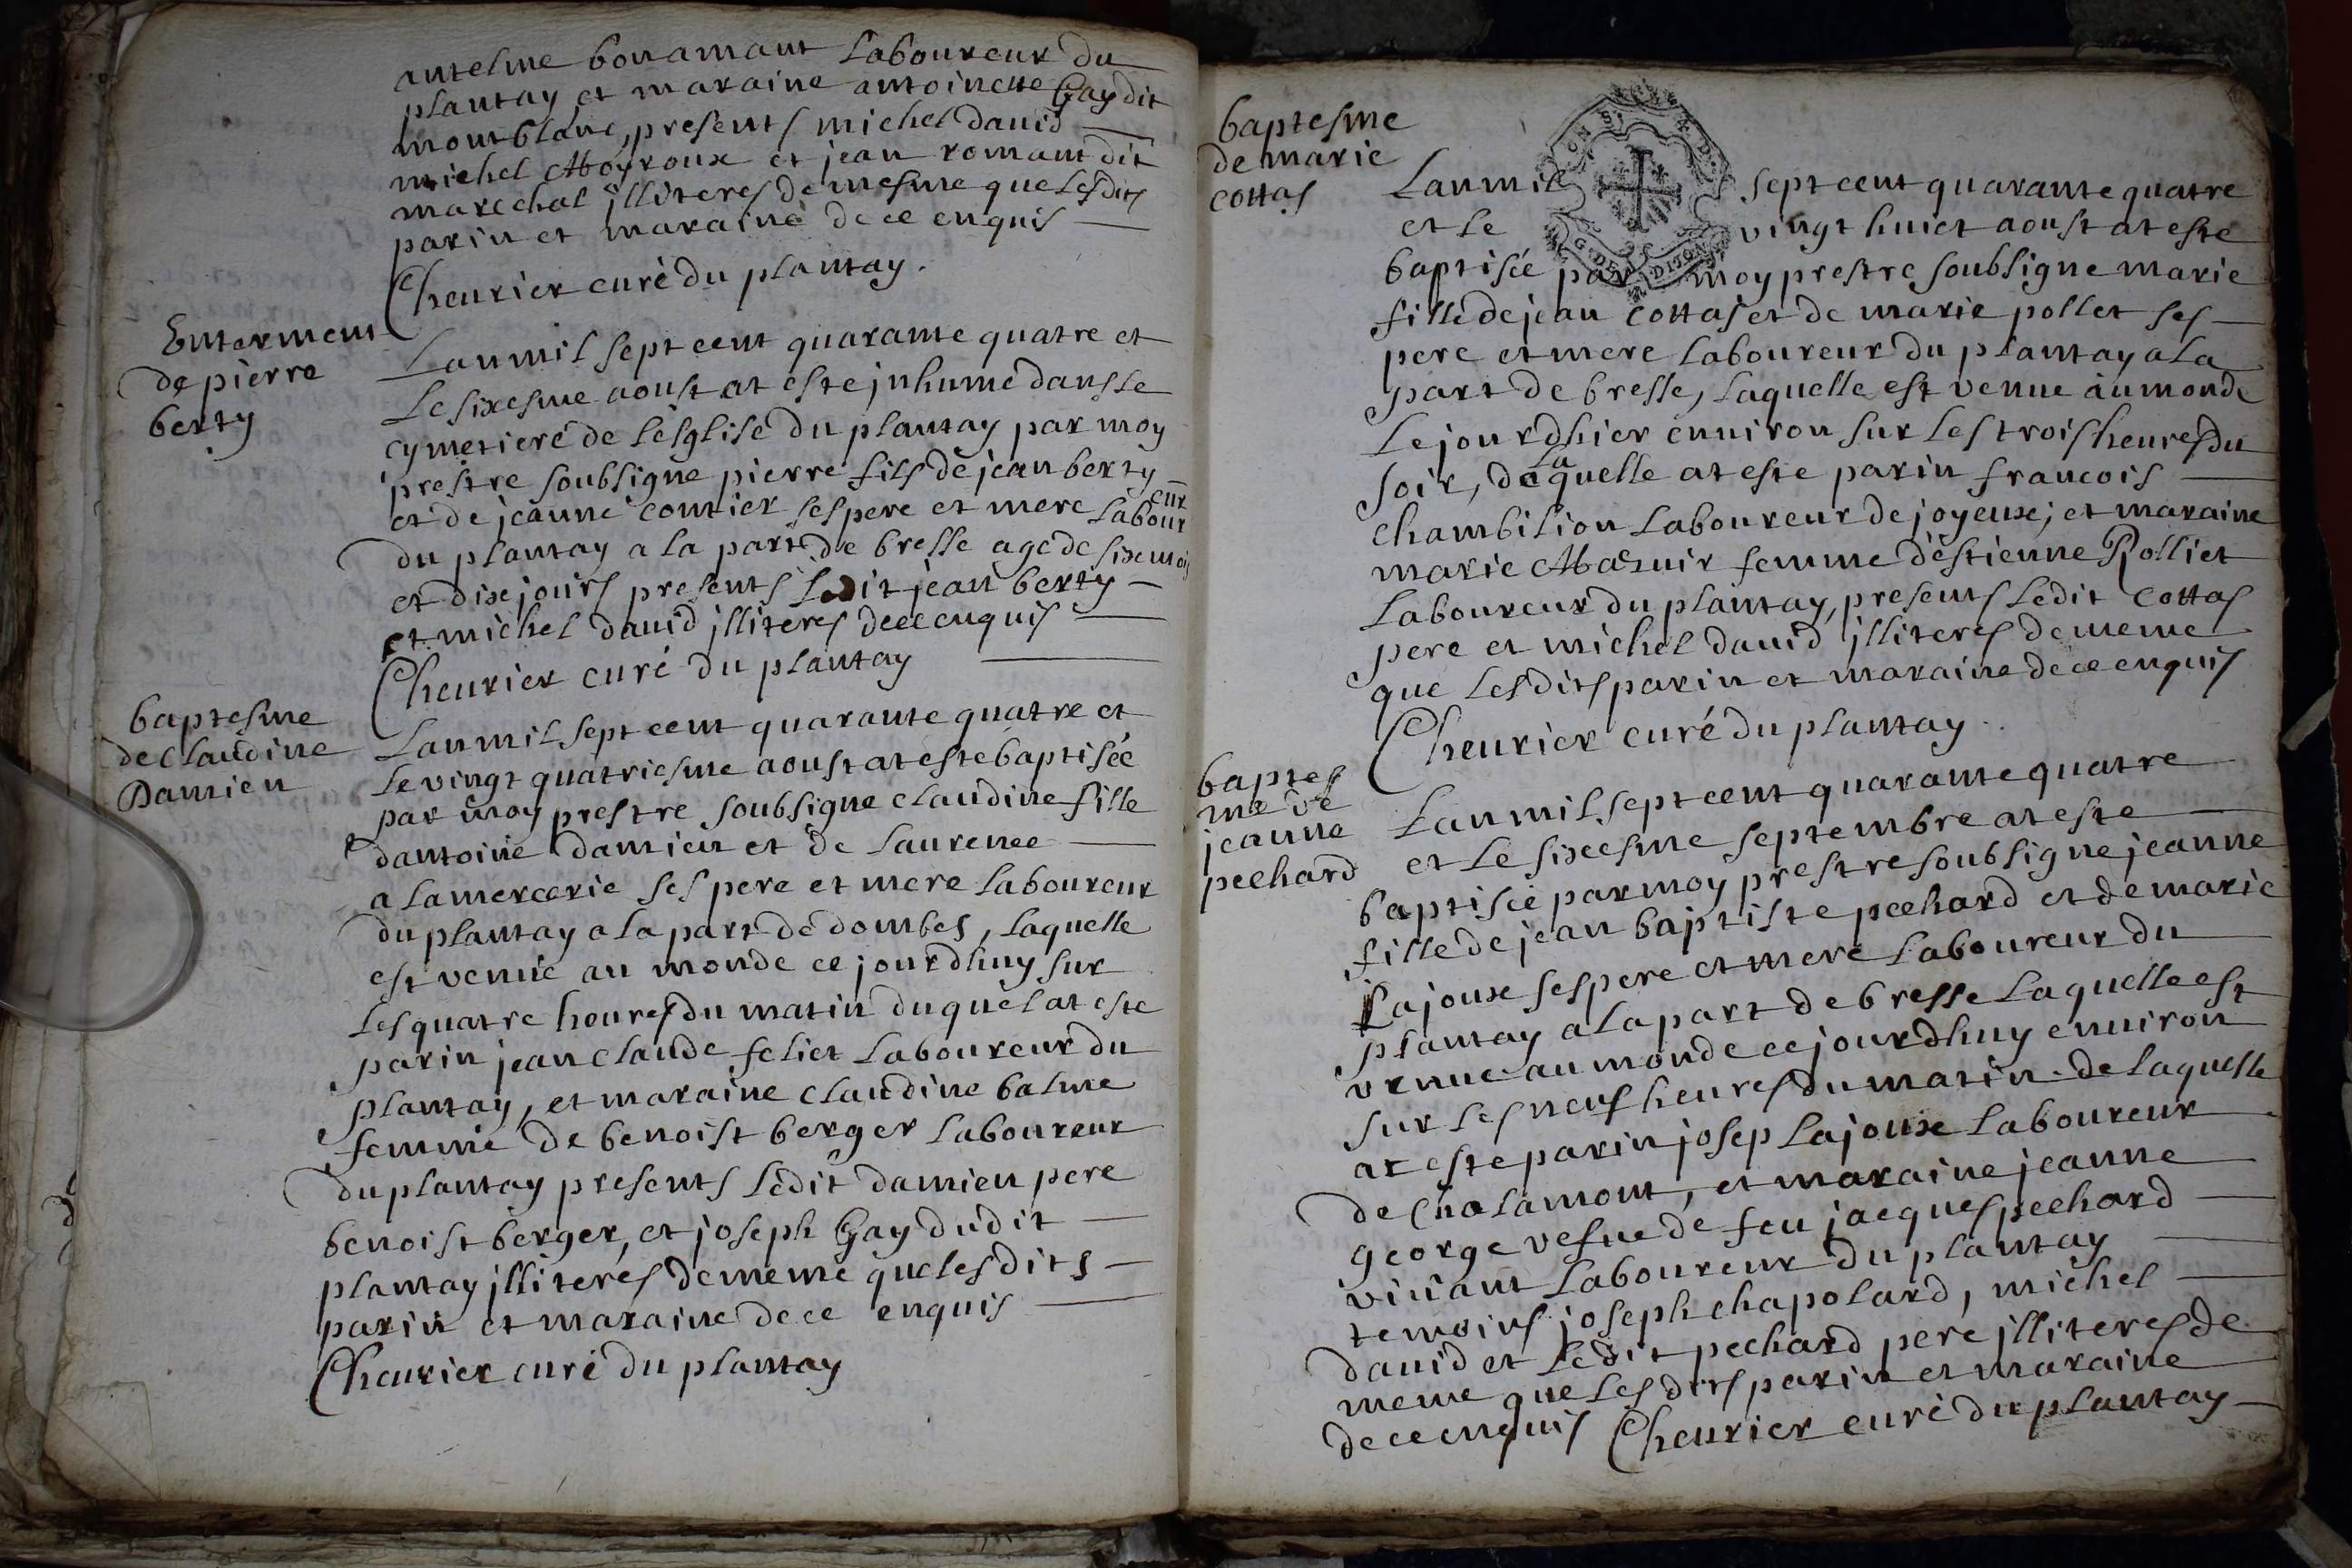 antelme bonamant Laboureur du
plantay et maraine antoinette Gay dit
montblanc, presents michel david
michel Moyroux et jean romant dit
marechal illiteres de mesme que lesdits
parin et maraine de ce enquis
Cheurier curé du plantay.
Enterment
de pierre
berty
Lan mil sept cent quarante quatre et
Le sixesme aoust at este inhume dans le
cymetiere de leglise du plantay par moy
prestre soubsigne pierre fils de jean berty
et de jeanne comtier ses pere et mere Laboureur
du plantay a la part de bresse age de six mois
et dixe jours presents Ledit jean berty
et michel david illiteres de ce enquis
Cheurier curé du plantay
baptesme
de Claudine
Damien
Lan mil sept cent quarante quatre et
Le vingt quatriesme aoust at este baptisée
par moy prestre soubsigne claudine fille
dantoine damien et de Laurence
a lamercerie ses pere et mere Laboureur
du plantay a la part de dombes, Laquelle
est venue au monde ce jourdhuy sur
Les quatre heures du matin duquel at este
parin jean claude feliet Laboureur du
plantay, et maraine claudine balme
femme de benoist berger Laboureur
du plantay presents Ledit damien pere
benoist berger, et joseph Gay dudit
plantay illiteres de meme que les dits
parin et maraine de ce enquis
Cheurier curé du plantay
baptesme
de marie
cottas
Lan mil sept cent quarante quatre
et Le vingt huict aoust at este
baptisée par moy prestre soubsigne marie
fille de jean cottas et de marie pollet ses
pere et mere Laboureur du plantay a La
part de bresse, Laquelle est venue au monde
Le jour dhier environ sur Les trois heures du
soir, de laquelle at este parin francois
chambilion Laboureur de joyeux; et maraine
marie Mazuir femme destienne Rolliet
Laboureur du plantay, presents Ledit Cottas
pere et michel david illiteres de meme
que Lesdits parin et maraine de ce enquis
Cheurier curé du plantay.
baptes
me de
jeanne
pechard
Lan mil sept cent quarante quatre
et Le sixcesme septembre at este
baptisée par moy prestre soubsigne jeanne
fille de jean baptiste pechard et de marie
Lajoux ses pere et mere Laboureur du
plantay a la part de bresse Laquelle est
venue au monde ce jourdhuy environ
sur Les neuf heures du matin de Laquelle
at este parin josep Lajoux Laboureur
de Chalamont, et maraine jeanne
george vefue de feu jacques pechard
vivant Laboureur du plantay
temoins joseph chapolard, michel
david et Ledit pechard pere illiteres de
meme que Les dits parin et maraine
de ce enquis Cheurier curé du plantay
G. DE DIJON